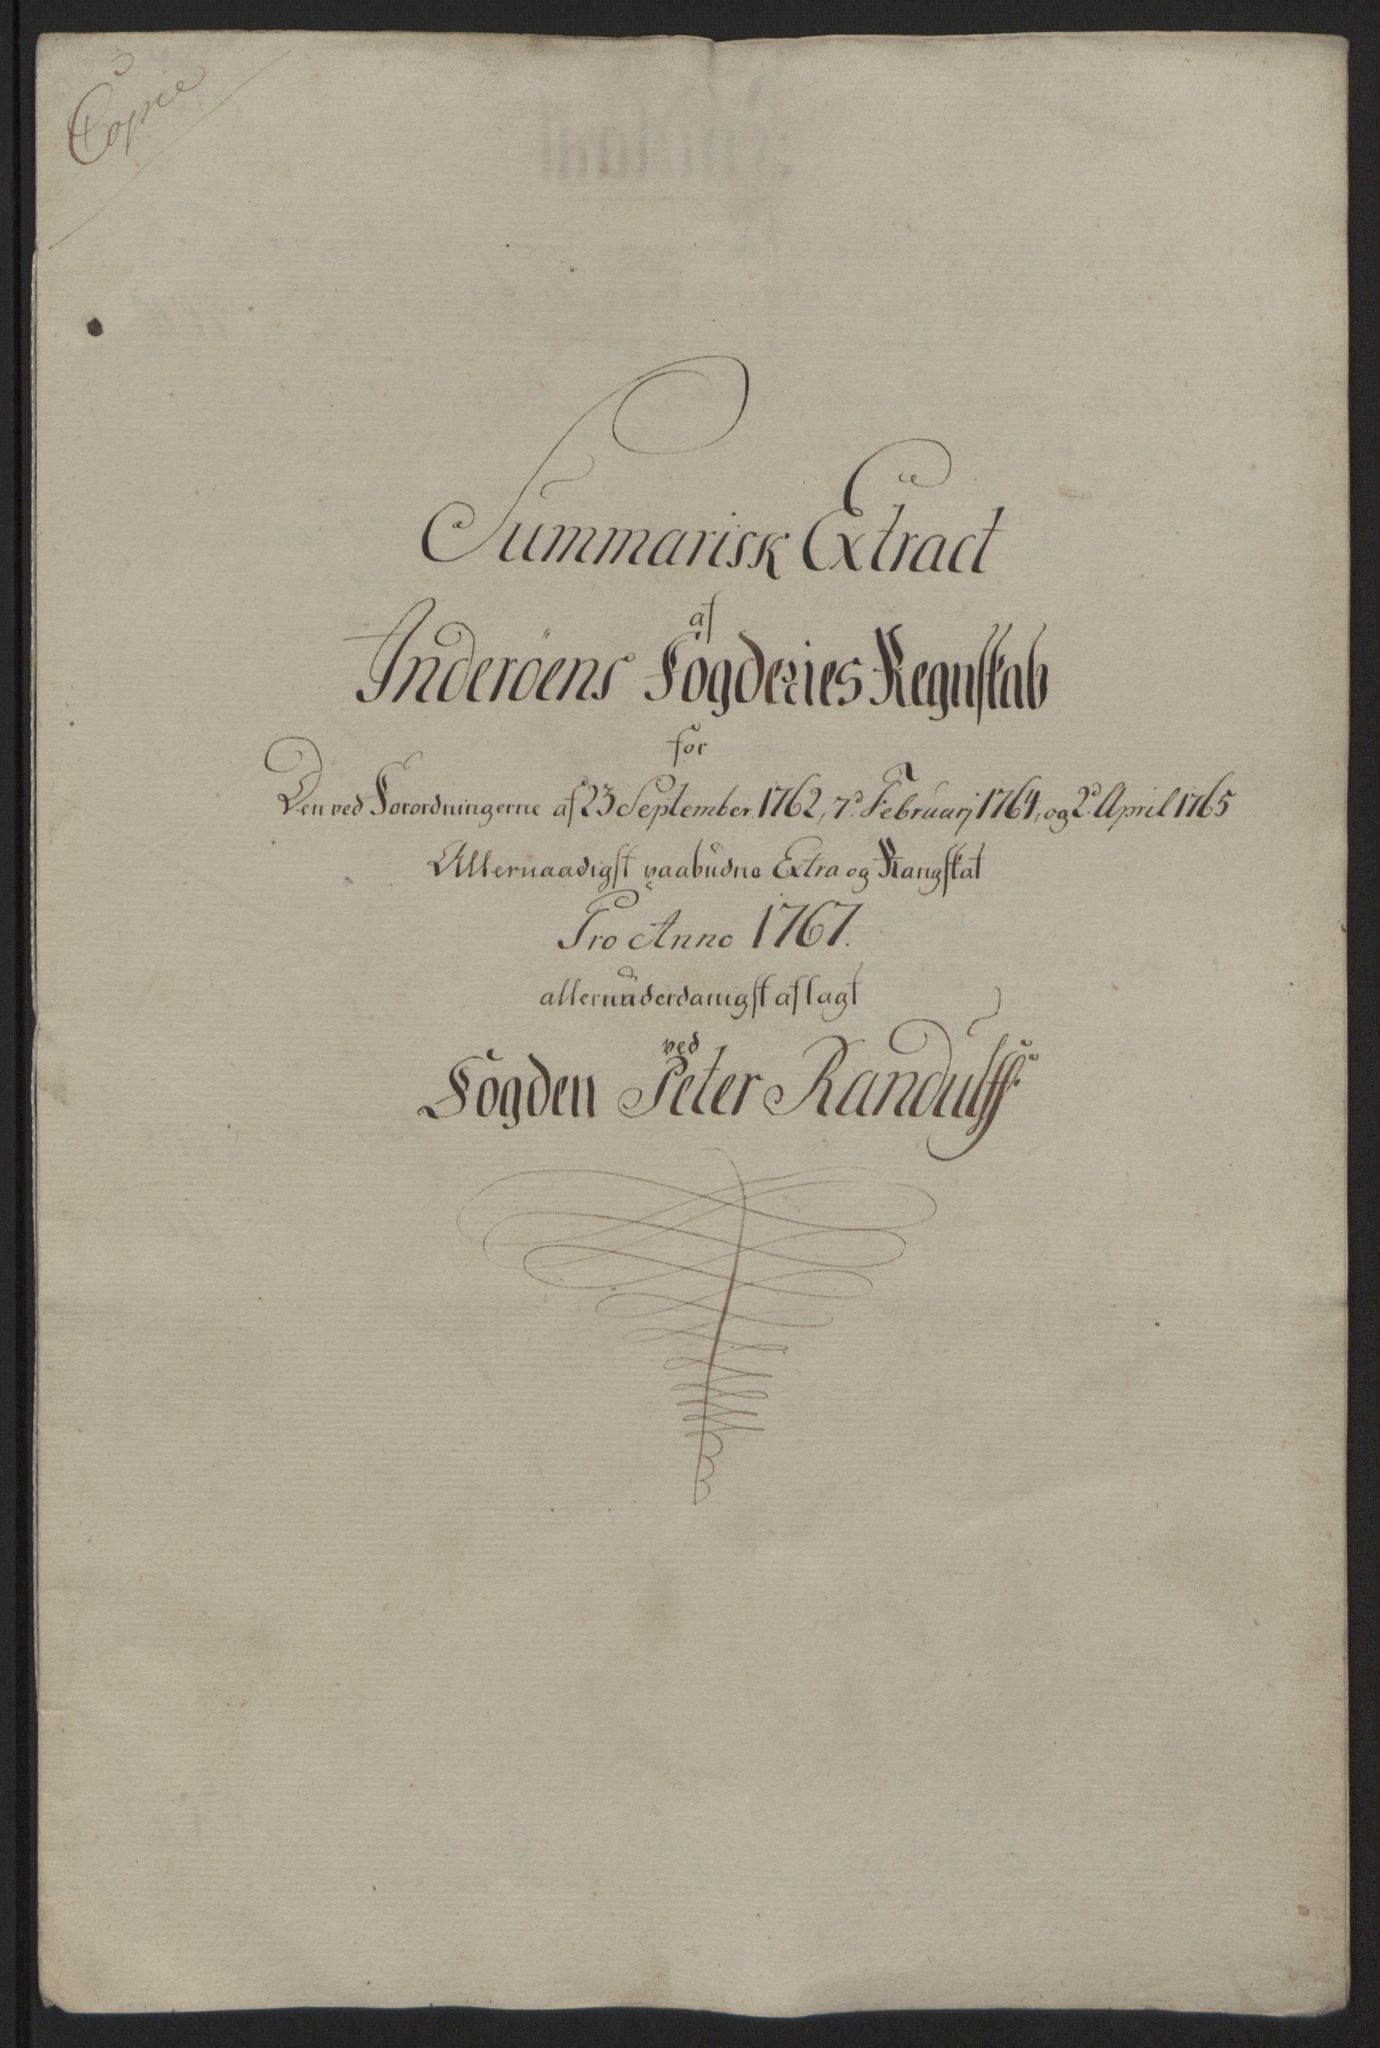 Copie
Summarisk Extract
af
Inderöens Fögderies Regnskab
for
Den ved Forordningerne af 23 September 1762, 7d. Februarj 1764, og 2d. April 1765
Allernaadigst paabudne Extra og Rangskat
Pro Anno 1767.
allerunderdanigst aflagt
ved
Fogden Peter Randulff